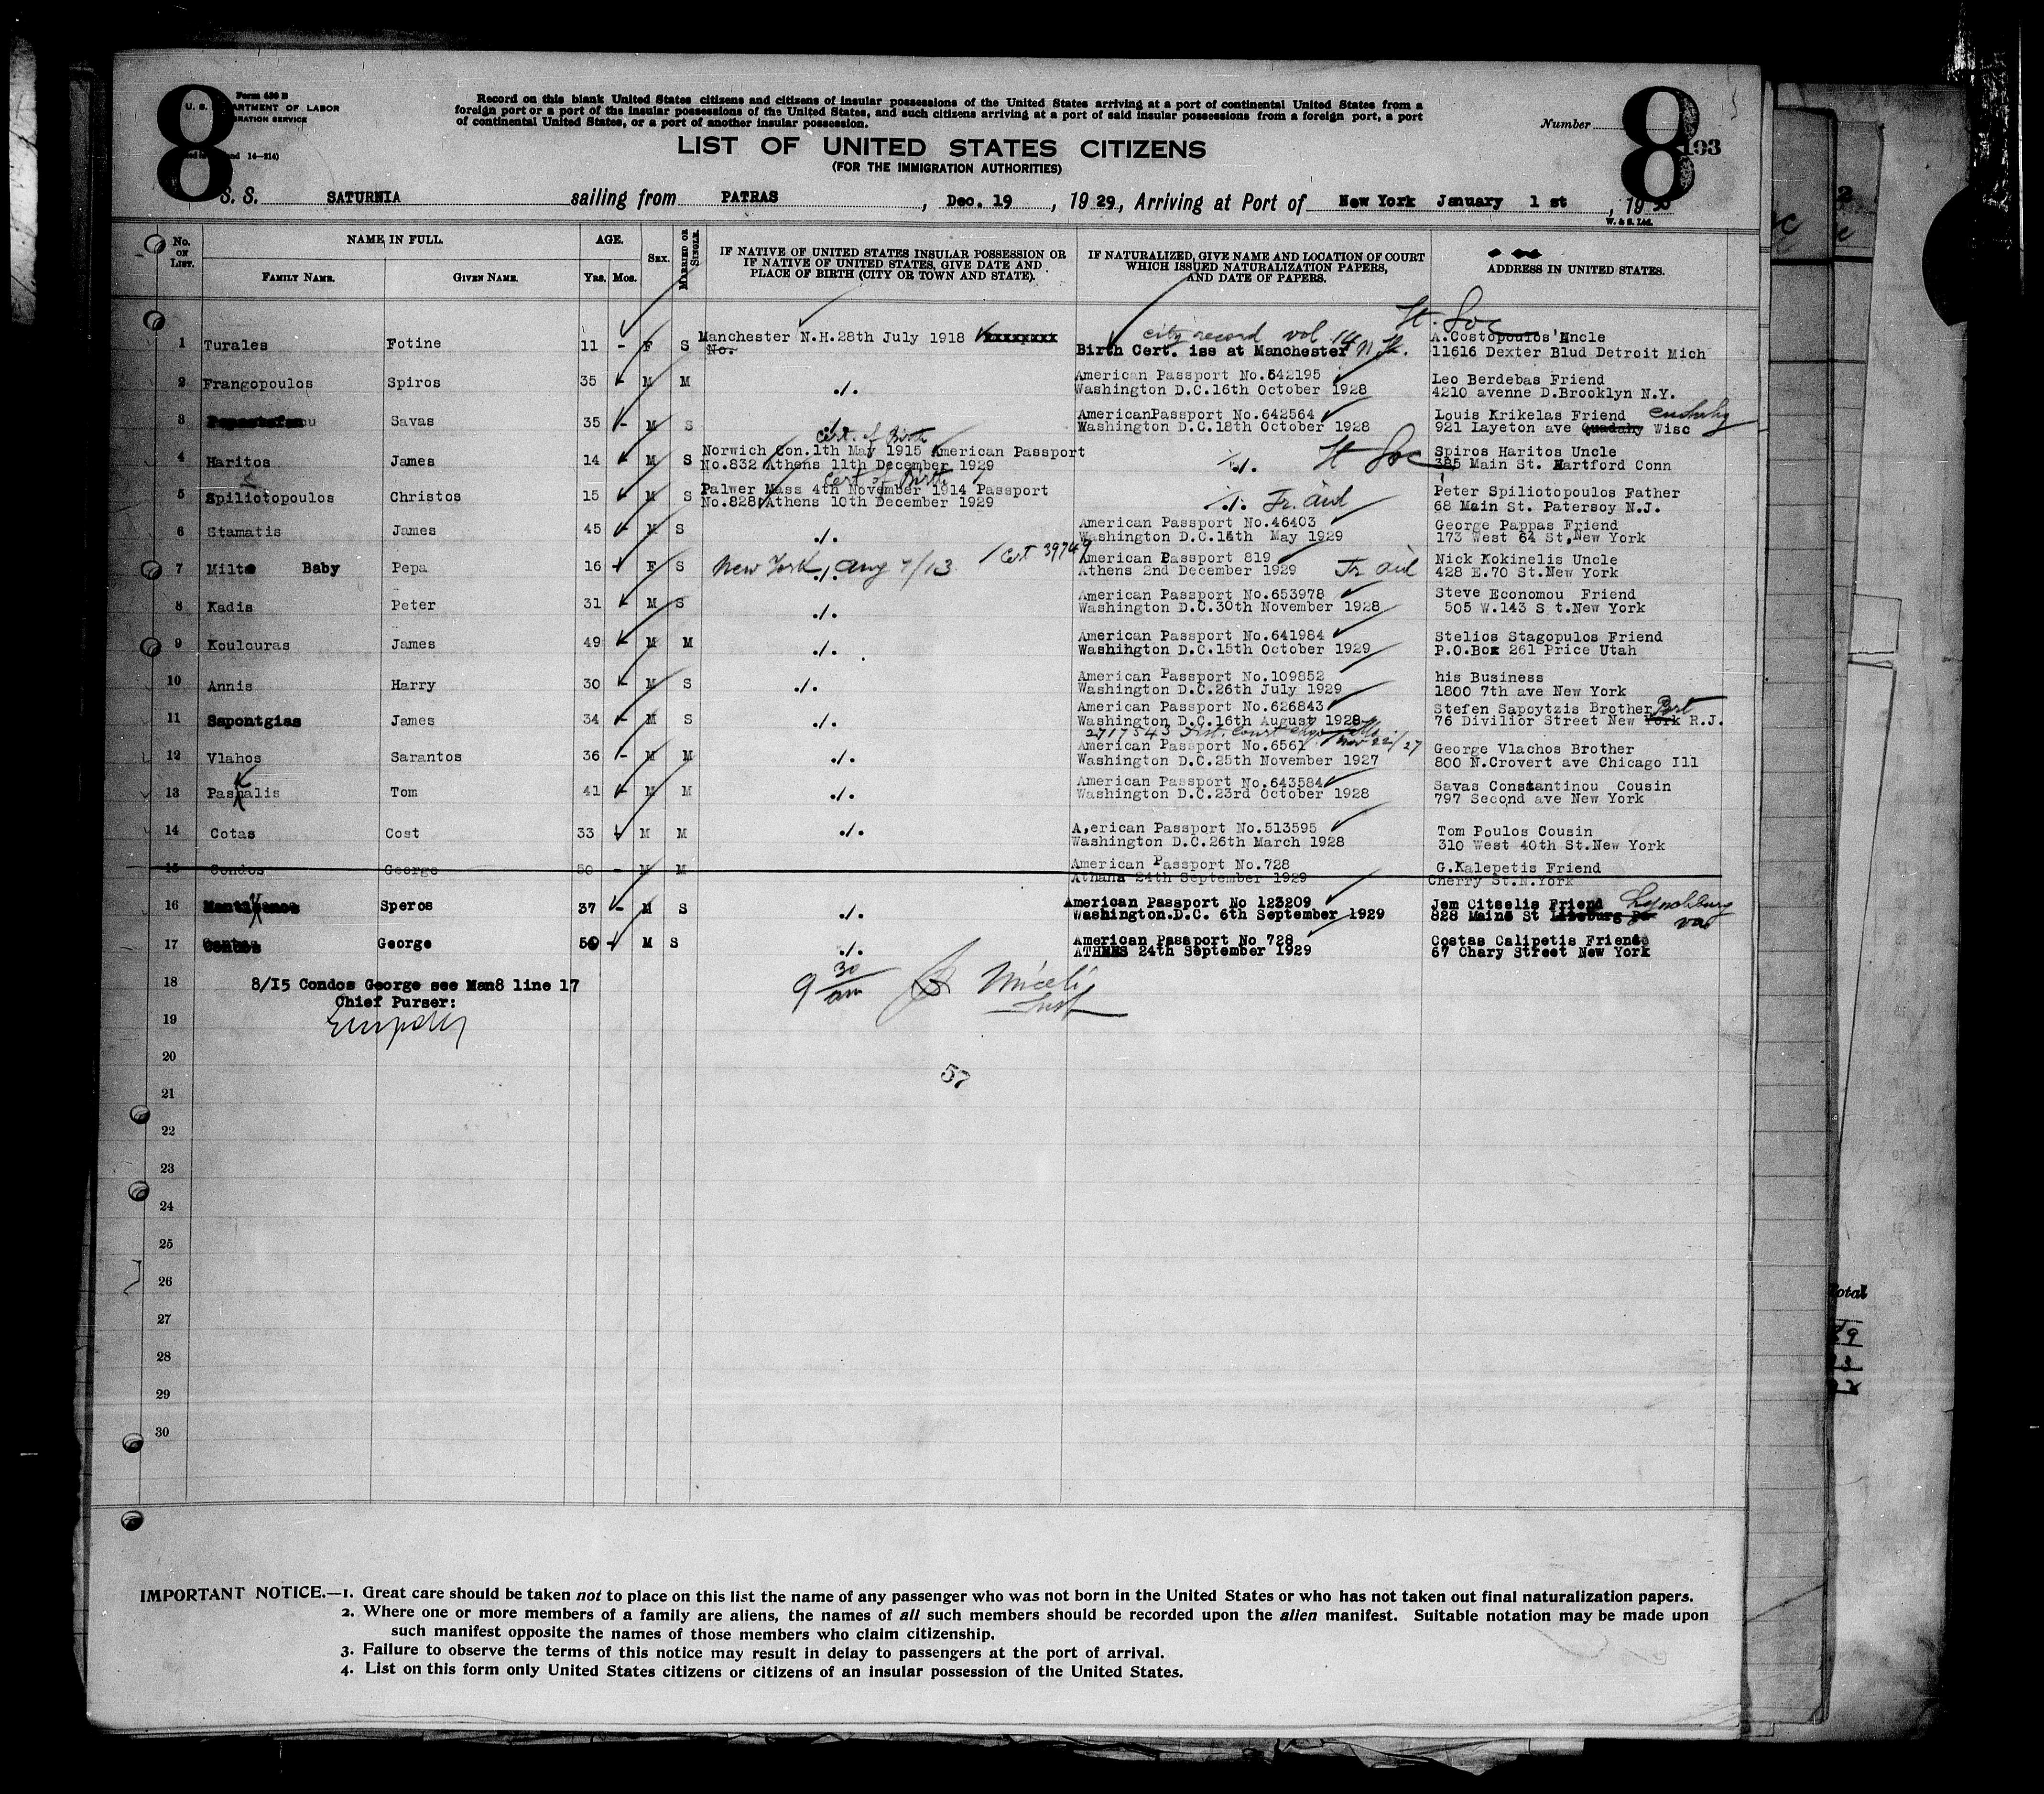 8
Form 430 B
U. S. DEPARTMENT OF LABOR
IMMIGRATION SERVICE
Record on this blank United States citizens and citizens of insular possessions of the United States arriving at a port of continental United States from a
foreign port or a port of the insular possessions of the United States, and such citizens arriving at a port of said insular possessions from a foreign port, a port
of continental United States, or a port of another insular possession.
Number
8
193
LIST OF UNITED STATES CITIZENS
(FOR THE IMMIGRATION AUTHORITIES)
S. S. SATURNIA sailing from PATRAS, Dec. 19, 1929, Arriving at Port of New York January 1 st, 19
W. & S. Ltd.
No. ON LIST.
NAME IN FULL.
FAMILY NAME.
GIVEN NAME.
AGE.
Yrs. Mos.
SEX.
MARRIED OR SINGLE.
IF NATIVE OF UNITED STATES INSULAR POSSESSION OR
IF NATIVE OF UNITED STATES, GIVE DATE AND
PLACE OF BIRTH (CITY OR TOWN AND STATE).
IF NATURALIZED, GIVE NAME AND LOCATION OF COURT
WHICH ISSUED NATURALIZATION PAPERS,
AND DATE OF PAPERS.
ADDRESS IN UNITED STATES.
1 Turales Fotine 11 - F S Manchester N.H.28th July 1918 xxxxxxxx
No.
city record vol 14
Birth Cert. iss at Manchester
A.Costopoulos Uncle
11616 Dexter Blud Detroit Mich
2 Frangopoulos Spiros 35 - M M ./. American Passport No.642195
Washington D.C.16th October 1928
Leo Berdebas Friend
4210 avenne D.Brooklyn N.Y.
3 Savas 35 - M S ./. AmericanPassport No.642564
Washington D.C.18th October 1928
Louis Krikelas Friend
921 Layeton ave Quadahy Wisc
Cert. of Birth
4 Haritos James 14 M S Norwich Con.1th May 1915 American Passport
No.832 Athens 11th December 1929
./. Spiros Haritos Uncle
385 Main St. Hartford Conn
Cert of Birth
5 Spiliotopoulos Christos 15 M S Palwer Mass 4th November 1914 Passport
No.828 Athens 10th December 1929
./. Tr. aid
Peter Spiliotopoulos Father
68 Main St. Patersoy N.J.
6 Stamatis James 45 M S ./. American Passport No.46403
Washington D.C.14th May 1929
George Pappas Friend
173 West 64 St,New York
7 Milto Baby Pepa 16 - F S New York, Aug 7/13 ./. Cert 39749
American Passport 819
Athens 2nd December 1929 Tr aid
Nick Kokinelis Uncle
428 E.70 St.New York
8 Kadis Peter 31 - M S ./. American Passport No.653978
Washington D.C.30th November 1928
Steve Economou Friend
505 W.143 S t.New York
9 Koulouras James 49 M M ./. American Passport No.641984
Washington D.C.15th October 1929
Stelios Stagopulos Friend
P.O.Box 261 Price Utah
10 Annis Harry 30 - M S ./. American Passport No.109852
Washington D.C.26th July 1929
his Business
1800 7th ave New York
11 Sapontgias James 34 - M S ./. American Passport No.626843
Washington D.C.16th August 1928
Stefen Sapoytzis Brother
76 Divilior Street New York R.J.
2717543 Dist. Court Nov 22/27
12 Vlahos Sarantos 36 - M M ./. American Passport No.6561
Washington D.C.25th November 1927
George Vlachos Brother
800 N.Crovert ave Chicago Ill
13 Pashalis Tom 41 - M M ./. American Passport No.643584
Washington D.C.23rd October 1928
Savas Constantinou Cousin
797 Second ave New York
14 Cotas Cost 33 M M ./. A,erican Passport No.513595
Washington D.C.26th March 1928
Tom Poulos Cousin
310 West 40th St.New York
15 Condos George 50 - M M American Passport No.728
Athans 24th September 1929
G.Kalepetis Friend
Cherry St.N.York
16 Speros 37 - M S ./. American Passport No 123209
Washington.D.C. 6th September 1929
Jem Citselis Friend Lynchburg
828 Maine St Va
17 George 50 - M S ./. American Passport No 728
ATHENS 24th September 1929
Costas Calipetis Friend
67 Chary Street New York
18 8/15 Condos George see Man8 line 17
Chief Purser:
9 30/am Miceli
Insp
19
20
57
21
22
23
24
25
26
27
28
29
30
IMPORTANT NOTICE.—1. Great care should be taken not to place on this list the name of any passenger who was not born in the United States or who has not taken out final naturalization papers.
2. Where one or more members of a family are aliens, the names of all such members should be recorded upon the alien manifest. Suitable notation may be made upon
such manifest opposite the names of those members who claim citizenship.
3. Failure to observe the terms of this notice may result in delay to passengers at the port of arrival.
4. List on this form only United States citizens or citizens of an insular possession of the United States.